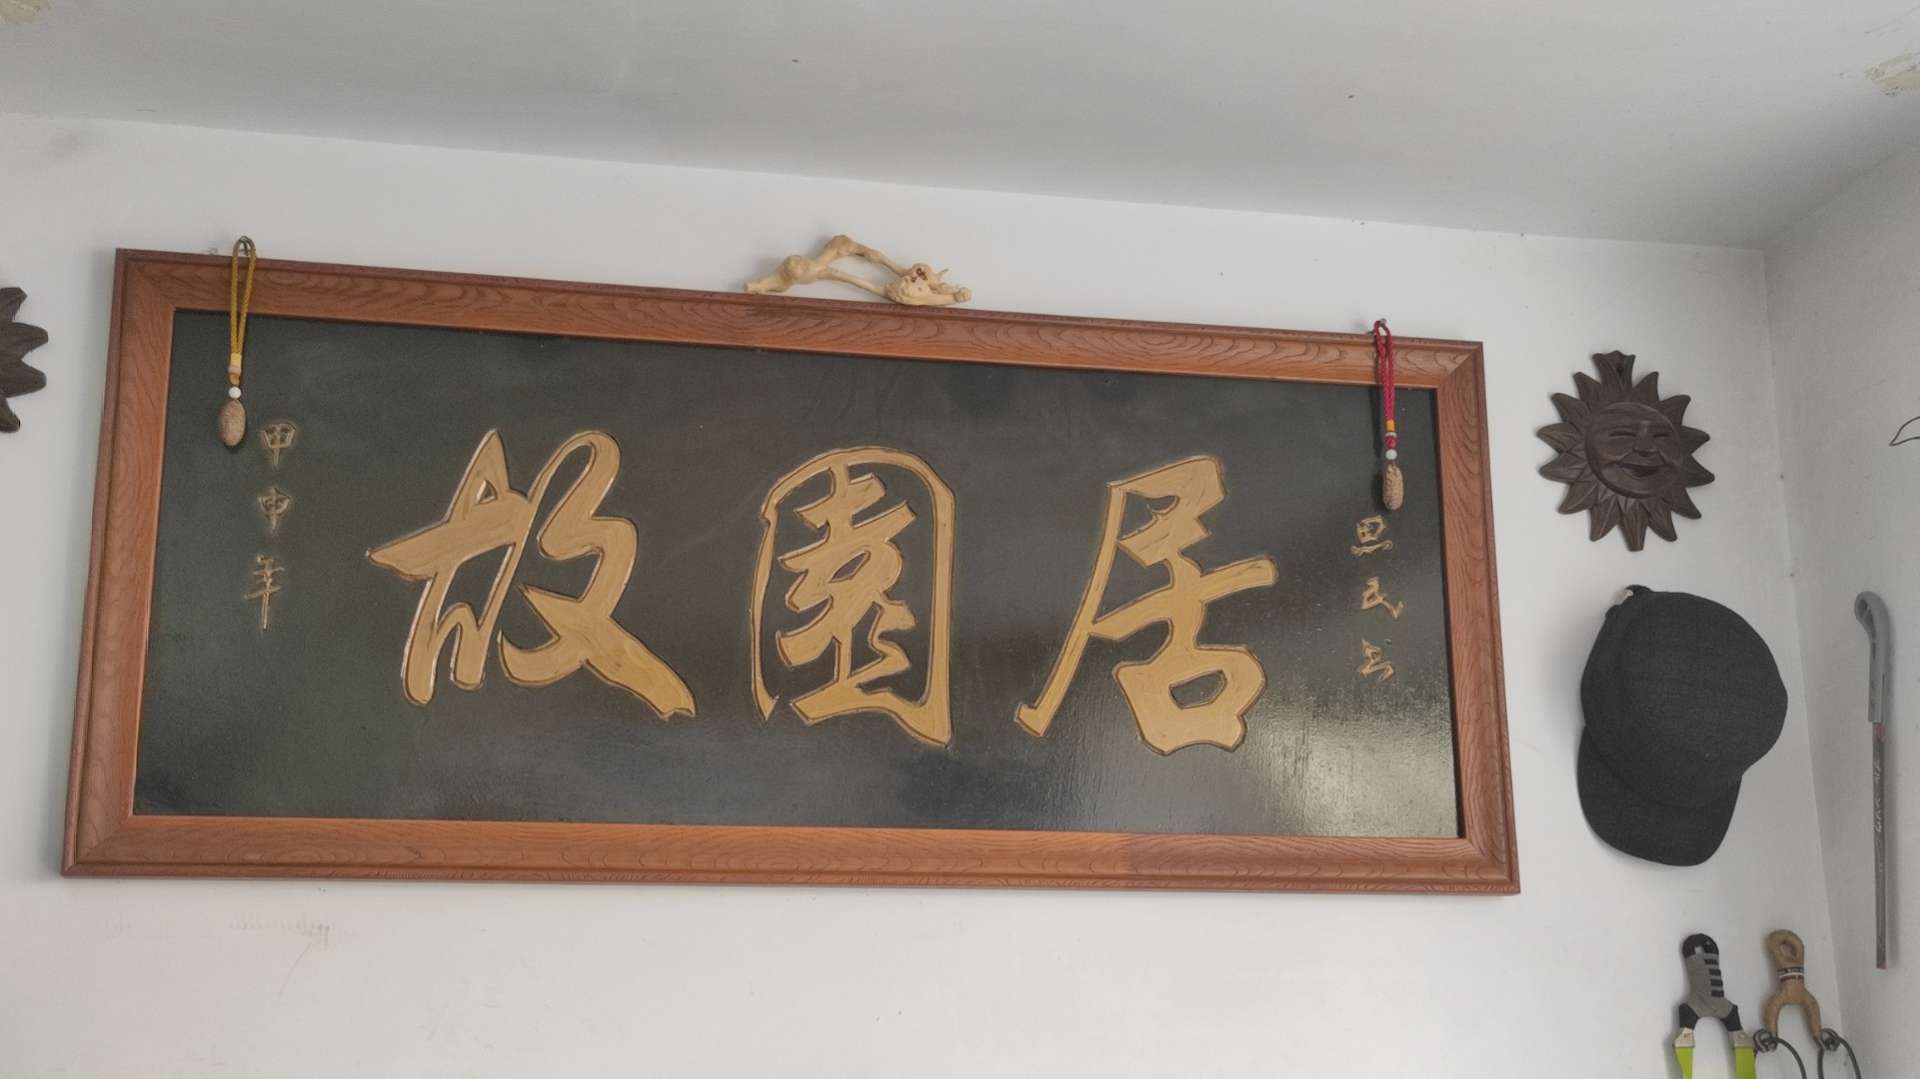 甲申年
故園居
思民书